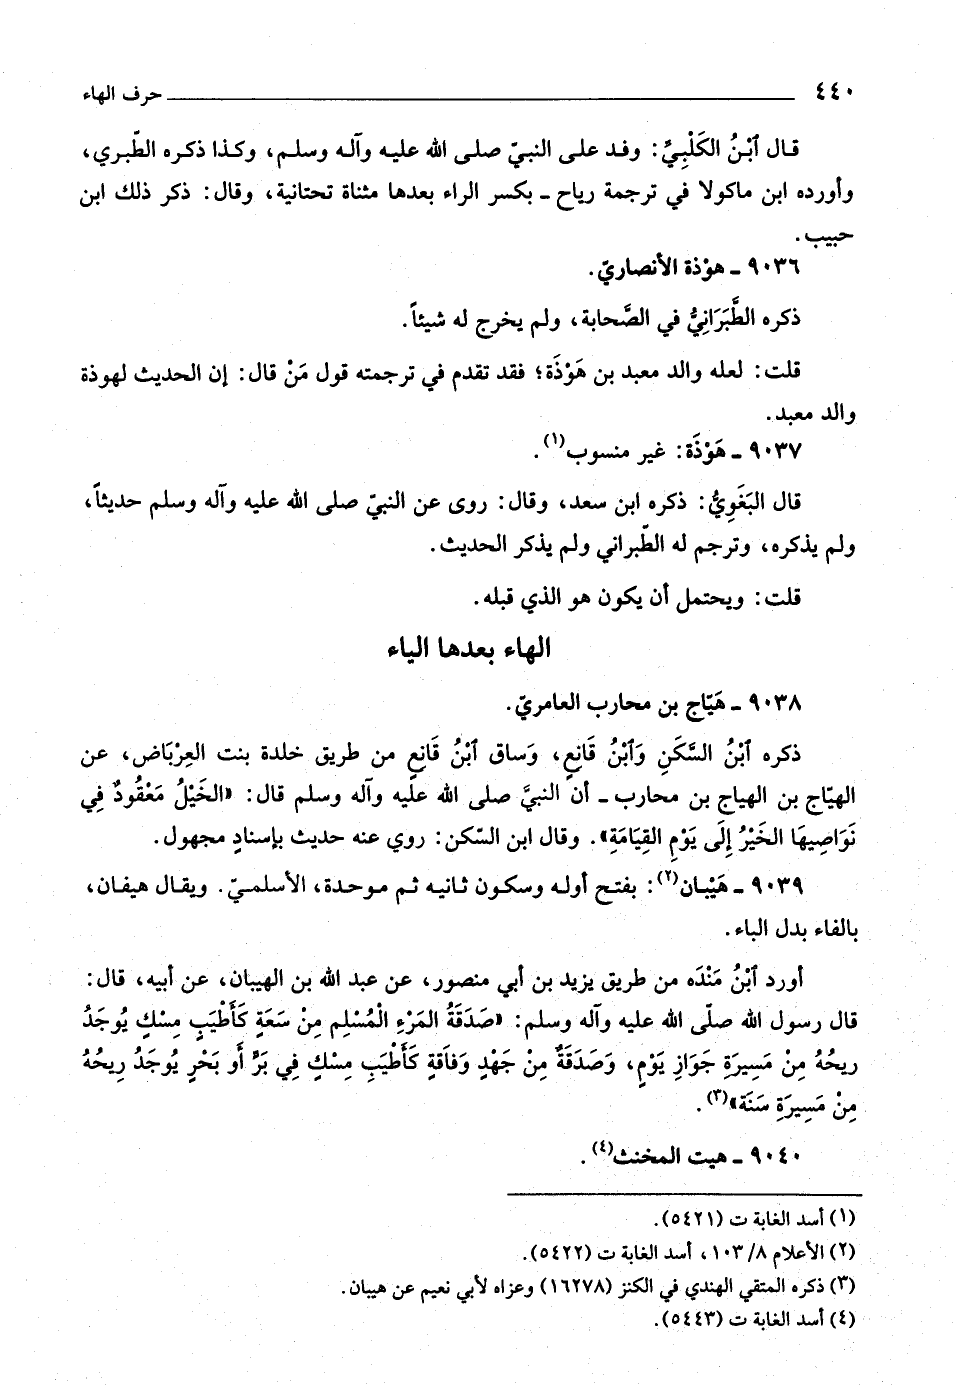 ٤٤٠ حرف الهاء
قال ٱبْنُ الكَلْبِيِّ: وفد على النبيّ صلى الله عليه وآله وسلم، وكذا ذكره الطّبري،
وأورده ابن ماكولا في ترجمة رياح ـ بكسر الراء بعدها مثناة تحتانية، وقال: ذكر ذلك ابن
حبيب.
٩٠٣٦ ـ هوْذة الأنصاريّ.
ذكره الطَّبَرَانِيُّ في الصَّحابة، ولم يخرج له شيئاً.
قلت: لعله والد معبد بن هَوْذَة؛ فقد تقدم في ترجمته قول مَنْ قال: إن الحديث لهوذة
والد معبد.
٩٠٣٧ ـ هَوْذَة: غير منسوب(١).
قال البَغَوِيُّ: ذكره ابن سعد، وقال: روى عن النبيّ صلى الله عليه وآله وسلم حديثاً،
ولم يذكره، وترجم له الطّبراني ولم يذكر الحديث.
قلت: ويحتمل أن يكون هو الذي قبله.
الهاء بعدها الياء
٩٠٣٨ ـ هَيّاج بن محارب العامريّ.
ذكره ٱبْنُ السَّكَنِ وَٱبْنُ قَانِعٍ، وَساق ٱبْنُ قَانِعٍ من طريق خلدة بنت العِرْبَاض، عن
الهيّاج بن الهياج بن محارب ـ أن النبيَّ صلى الله عليه وآله وسلم قال: «الخَيْلُ مَعْقُودٌ فِي
نَوَاصِيهَا الخَيْرُ إِلَى يَوْمِ القِيَامَةِ». وقال ابن السّكن: روي عنه حديث بإسنادٍ مجهول.
٩٠٣٩ ـ هَيْبان(٢): بفتح أوله وسكون ثانيه ثم موحدة، الأسلميّ. ويقال هيفان،
بالفاء بدل الباء.
أورد ٱبْنُ مَنْدَه من طريق يزيد بن أبي منصور، عن عبد الله بن الهيبان، عن أبيه، قال:
قال رسول الله صلّى الله عليه وآله وسلم: «صَدَقَةُ المَرْءِ الْمُسْلِمِ مِنْ سَعَةٍ كَأَطْيَبِ مِسْكٍ يُوجَدُ
رِيحُهُ مِنْ مَسِيرَةِ جَوَازِ يَوْمٍ، وَصَدَقَةٌ مِنْ جَهْدٍ وَفَاقَةٍ كَأَطْيَبِ مِسْكٍ فِي بَرٍّ أَو بَحْرٍ يُوجَدُ رِيحُهُ
مِنْ مَسِيرَةِ سَنَة»(٣).
٩٠٤٠ ـ هيت المخنث(٤).
(١) أسد الغابة ت (٥٤٢١).
(٢) الأعلام ٨/ ١٠٣، أسد الغابة ت (٥٤٢٢).
(٣) ذكره المتقي الهندي في الكنز (١٦٢٧٨) وعزاه لأبي نعيم عن هيبان.
(٤) أسد الغابة ت (٥٤٤٣).